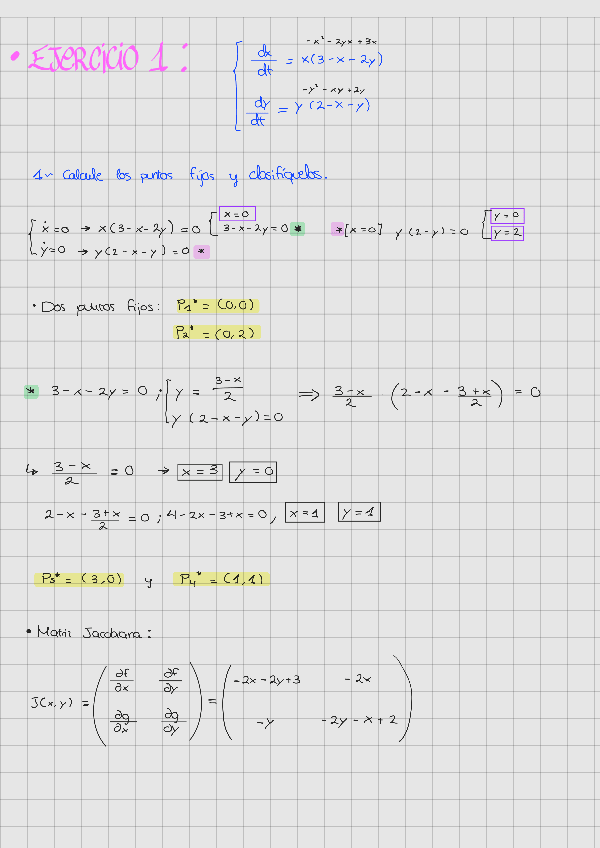 • EJERCICIO 1:
-x² - 2yx + 3x
dx/dt = x(3-x-2y)
-y² - xy + 2y
dy/dt = y(2-x-y)
1~ Calcule los puntos fijos y clasifíquelos.
ẋ=0 → x(3-x-2y) = 0 { x=0
3-x-2y=0 *
ẏ=0 → y(2-x-y)=0 *
*[x=0] y(2-y)=0 { y=0
y=2
• Dos puntos fijos: P1* = (0,0)
P2* = (0,2)
* 3-x-2y=0 ; { y = (3-x)/2 ⟹ (3-x)/2 (2-x - (3+x)/2) = 0
y(2-x-y)=0
↳ (3-x)/2 = 0 → x=3 y=0
2-x-(3+x)/2 = 0 ; 4-2x-3+x=0, x=1 y=1
P3* = (3,0) y P4* = (1,1)
• Matriz Jacobiana:
J(x,y) = ( ∂f/∂x ∂f/∂y ) = ( -2x-2y+3 -2x )
( ∂g/∂x ∂g/∂y ) ( -y -2y-x+2 )